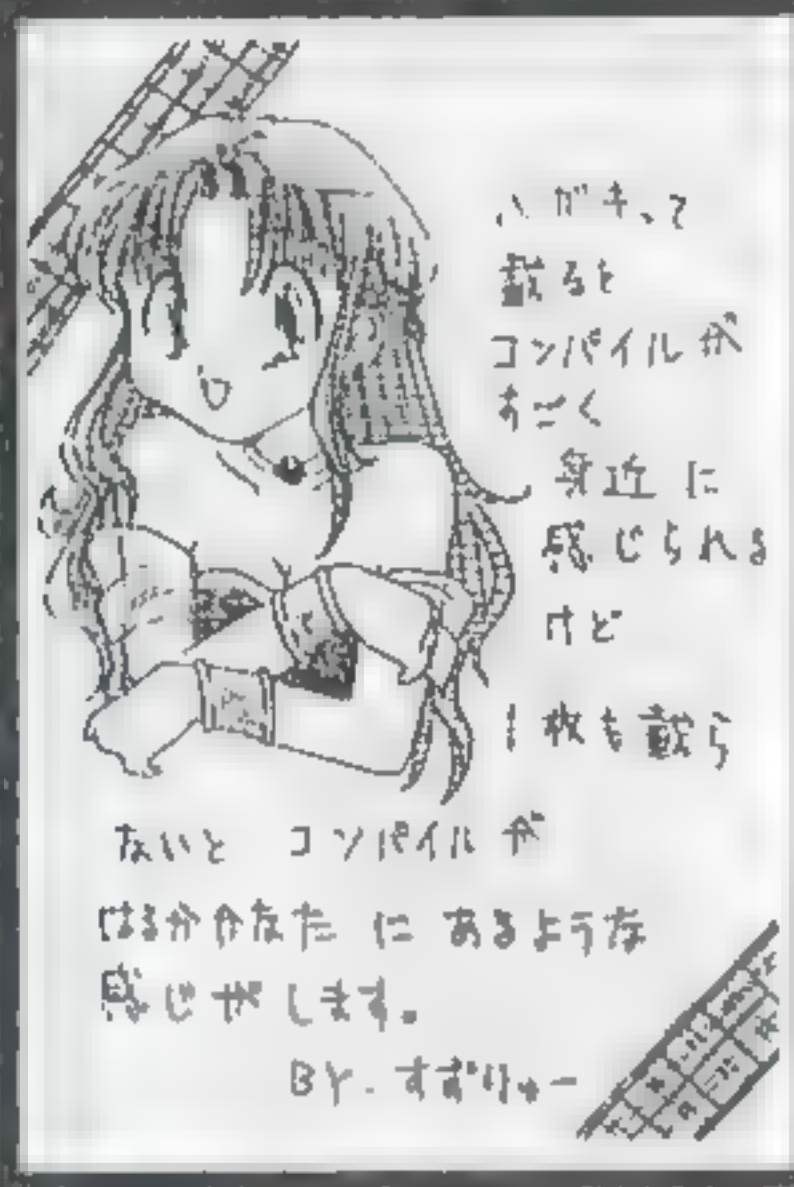 ハガキって
載ると
コンパイルが
すごく
身近に
感じられる
けど
1枚も載ら
ないと コンパイルが
はるかかなた にあるような
感じがします。
BY. すずりゅー